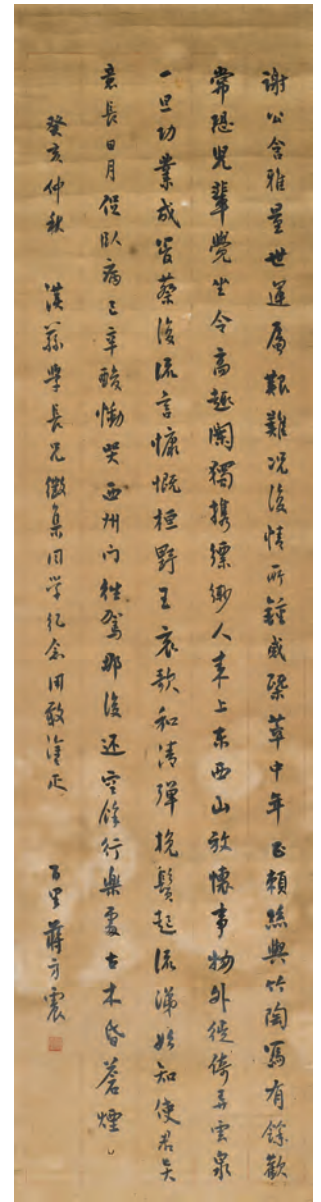 謝公含雅量世運屬艱難況復情所鍾感槩萃中年正賴絲與竹陶寫有餘歡
常恐兒輩覺坐令高趣闌獨攜縹緲人來上東西山放懷事物外徙倚弄雲泉
一旦功業成管蔡復流言慷慨桓野王哀歌和清彈挽鬚起流涕始知使君賢
意長日月促臥病已辛酸慟哭西州門往駕那復還空餘行樂處古木昏蒼煙
癸亥仲秋 蓀學長兄徵集同學紀念用敢塗正 百里蔣方震